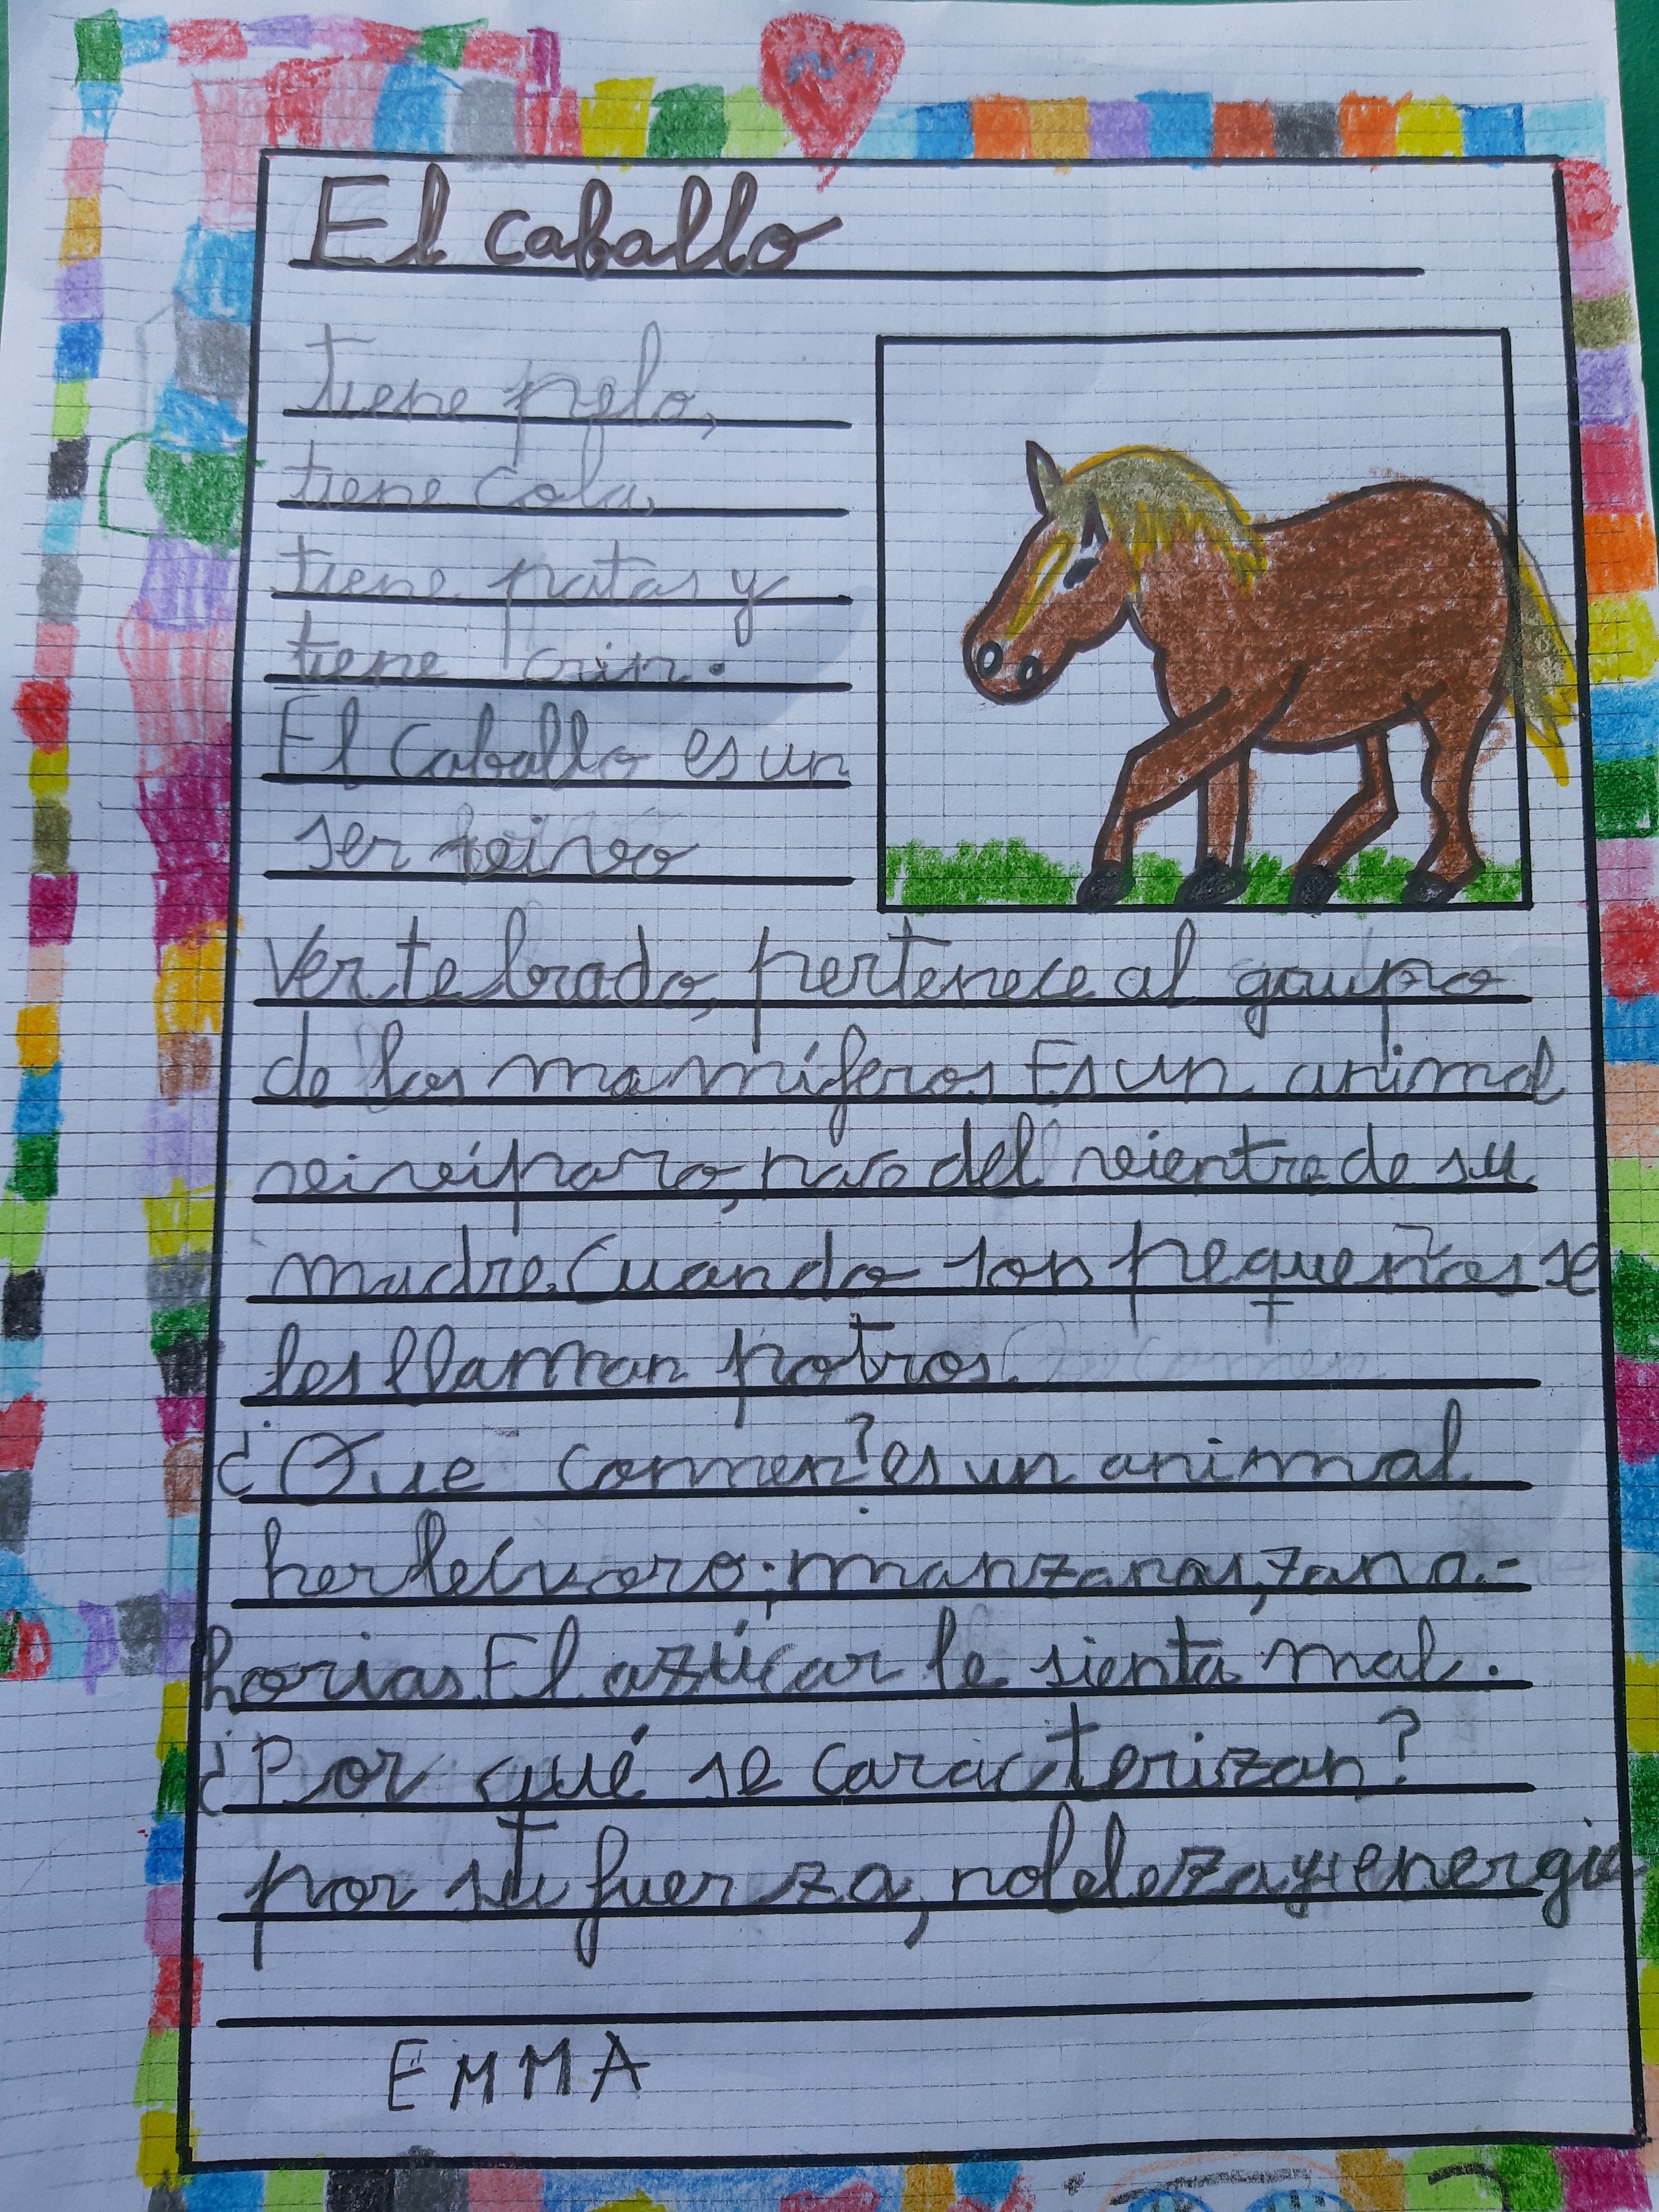 El caballo
tiene pelo,
tiene cola,
tiene patas y
tiene crin.
El Caballo es un
ser vivo
Vertebrado, pertenece al grupo
de los mamíferos Es un animal
vivíparo, nace del vientre de su
madre. Cuando son pequeños se
les llaman potros.
¿Que comen? es un animal
herbívoro; manzanas, zana-
horias. El azúcar le sienta mal.
¿Por qué se caracterizan?
por su fuerza, nobleza y energia
EMMA